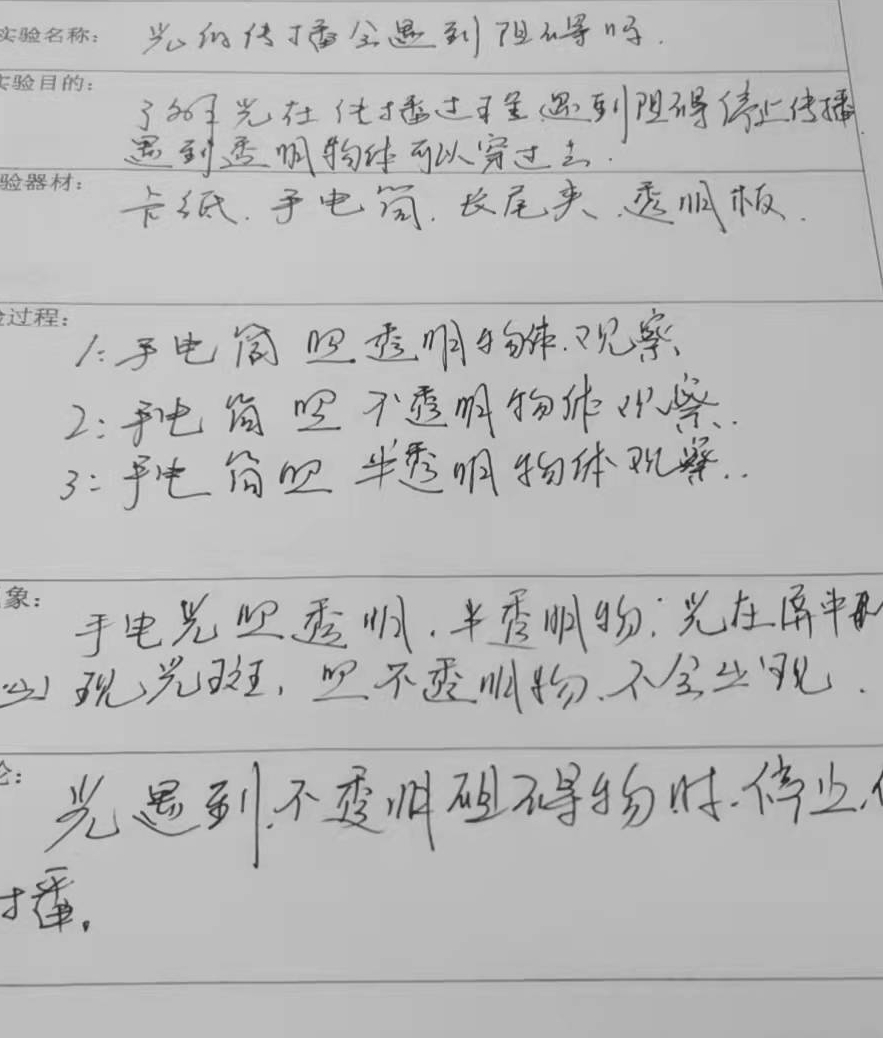 实验名称: 光的传播会遇到阻碍吗.
实验目的:
了解光在传播过程遇到阻碍停止传播
遇到透明物体可以穿过去.
验器材: 卡纙. 手电筒. 长尾夹. 透明板.
过程:
1: 手电筒照透明物体.观察
2: 手电筒照不透明物体观察.
3: 手电筒照半透明物体观察..
象:
手电光照透明.半透明物:光在屏中
现光斑, 照不透明物.不会出现.
光遇到.不透明阻碍物时.停止.
播.